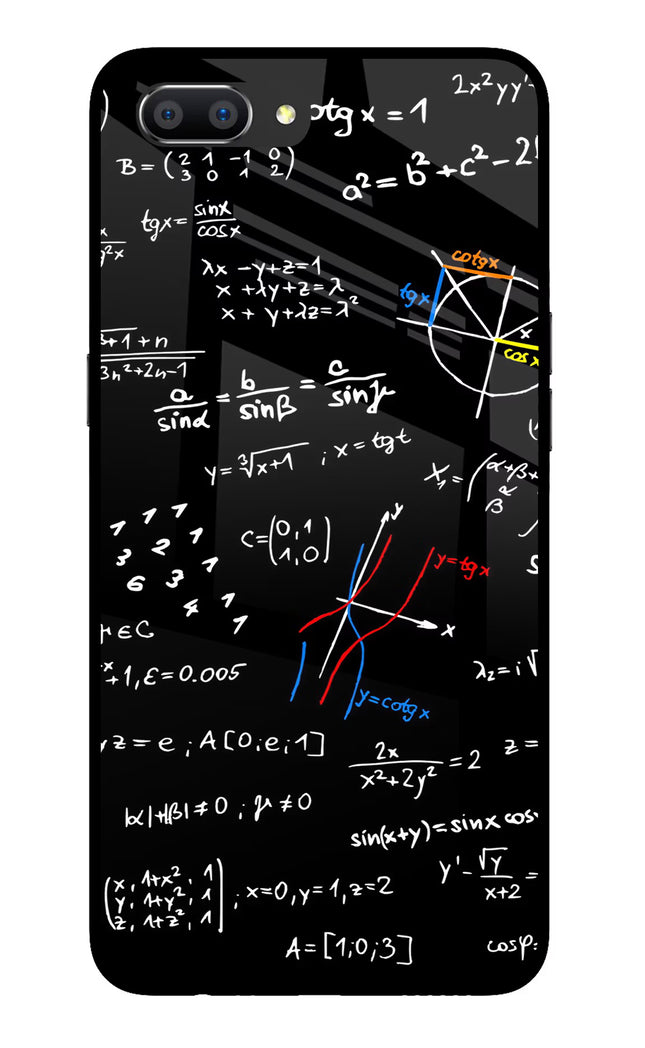 otg x = 1
2x²yy'
B = (2 1 -1 0
3 0 1 2)
a² = b² + c² - 2
tgx = sinx
cosx
x
y²x
λx - y + z = 1
x + λy + z = λ
x + y + λz = λ²
cotgx
tgx
x
cosx
3+1 + n
3n² + 2n - 1
a/sinα = b/sinβ = c/sinγ
y = ∛x+1 ; x = tgt
X₁ = (α+β+
β
1 1 1
3 2 1
6 3 1
4 1
1
C = (0, 1
1, 0)
y
y = tgx
x
y = cotgx
∈C
+1, ε = 0.005
λ₂ = i√
z = e ; A[0;e;1]
2x
x² + 2y² = 2
z =
|α|+|β| ≠ 0 ; γ ≠ 0
sin(x+y) = sinx cos
y' - √y
x+2 =
(x, 1+x², 1
y, 1+y², 1
z, 1+z², 1) ; x=0, y=1, z=2
A = [1;0;3]
cosφ